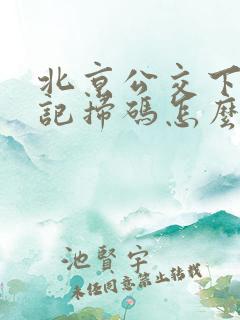 北京公交下
記掃碼怎麼
池賢宇
未任同意禁止转载